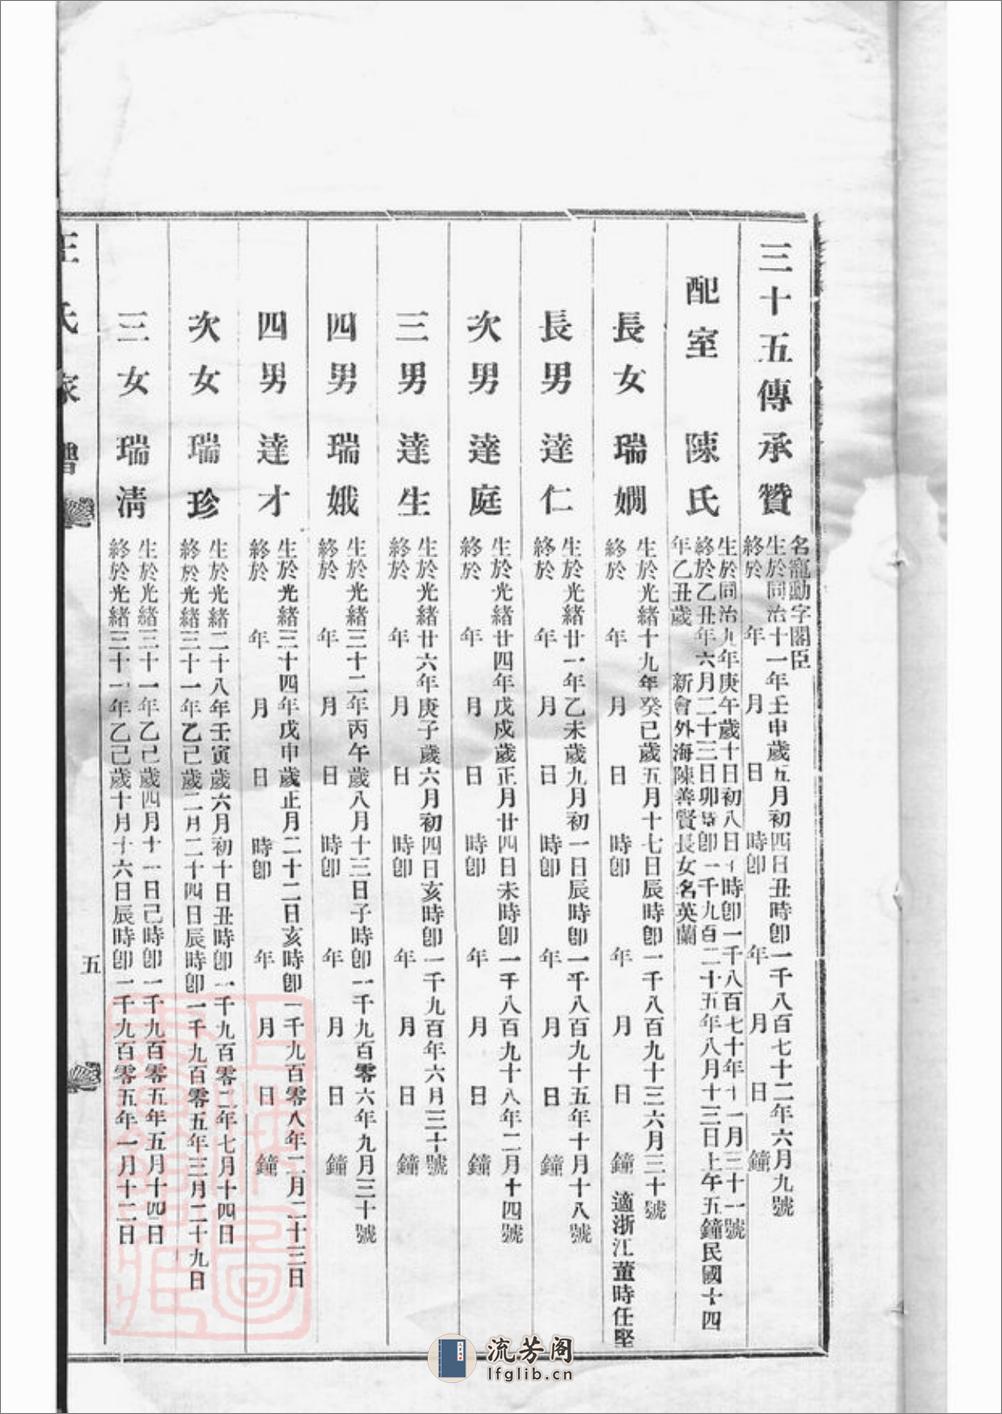 三十五傳承贊
名寵勳字閣臣
生於同治十一年壬申歲五月初四日丑時卽一千八百七十二年六月九號
終於 年 月 日 時卽 年 月 日 鐘
配室 陳氏
生於同治九年庚午歲十日初八日十時卽一千八百七十年十一月三十一號
終於乙丑年六月二十三日卯時卽一千九百二十五年八月十三日上午五鐘民國十四
年乙丑歲 新會外海陳善賢長女名英蘭
長女 瑞嫺
生於光緒十九年癸巳歲五月十七日辰時卽一千八百九十三六月三十號
終於 年 月 日 時卽 年 月 日 鐘 適浙江董時任堅
長男 達仁
生於光緒廿一年乙未歲九月初一日辰時卽一千八百九十五年十月十八號
終於 年 月 日 時卽 年 月 日 鐘
次男 達庭
生於光緒廿四年戊戍歲正月廿四日未時卽一千八百九十八年二月十四號
終於 年 月 日 時卽 年 月 日 鐘
三男 達生
生於光緒廿六年庚子歲六月初四日亥時卽一千九百年六月三十號
終於 年 月 日 時卽 年 月 日 鐘
四男 瑞娥
生於光緒三十二年丙午歲八月十三日子時卽一千九百零六年九月三十號
終於 年 月 日 時卽 年 月 日 鐘
四男 達才
生於光緒三十四年戊申歲正月二十二日亥時卽一千九百零八年二月二十三日
終於 年 月 日 時卽 年 月 日 鐘
次女 瑞珍
生於光緒二十八年壬寅歲六月初十日丑時卽一千九百零二年七月十四日
終於光緒三十一年乙己歲二月二十四日辰時卽一千九百零五年三月二十九日
三女 瑞清
生於光緒三十一年乙己歲四月十一日己時卽一千九百零五年五月十四日
終於光緒三十一年乙己歲十月十六日辰時卽一千九百零五年一月十二日
王氏家譜
五
流芳阁
lfglib.cn